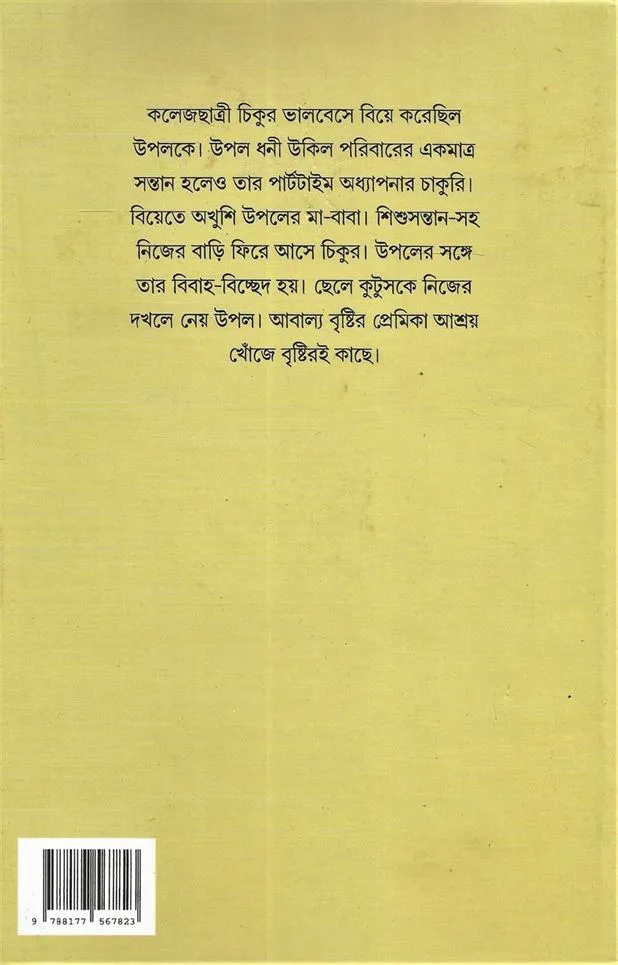 কলেজছাত্রী চিকুর ভালবেসে বিয়ে করেছিল
উপলকে। উপল ধনী উকিল পরিবারের একমাত্র
সন্তান হলেও তার পার্টটাইম অধ্যাপনার চাকুরি।
বিয়েতে অখুশি উপলের মা-বাবা। শিশুসন্তান-সহ
নিজের বাড়ি ফিরে আসে চিকুর। উপলের সঙ্গে
তার বিবাহ-বিচ্ছেদ হয়। ছেলে কুটুসকে নিজের
দখলে নেয় উপল। আবাল্য বৃষ্টির প্রেমিকা আশ্রয়
খোঁজে বৃষ্টিরই কাছে।
9 788177 567823